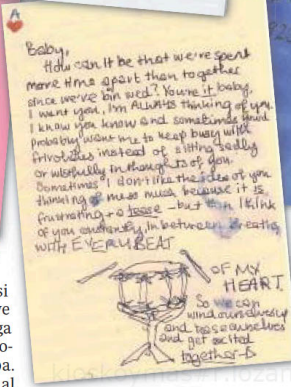 Baby,
How can it be that we're spent
more time apart than together
since we've bin wed? You're it baby,
I want you, I'm ALWAYS thinking of you.
I know you know and sometimes you'd
probably want me to keep busy with
frivolties instead of sitting sadly
or wistfully in thoughts of you.
Sometimes I don't like the idea of you
thinking of me so much because it is
frustrating + a tease - but I think
of you constantly, in between breaths,
WITH EVERY BEAT
OF MY
HEART.
So we can
wind ourselves up
and tease ourselves
and get excited
together -
si
ve
ga
o-
pa.
al